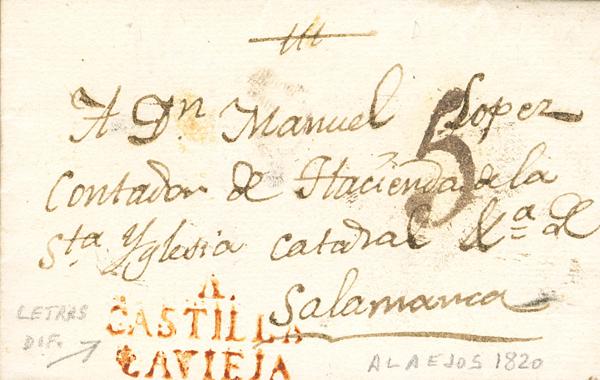 A Dn Manuel Lopez
5
Contador de Hacienda de la
Sta Yglesia catadral &a de
Salamanca
A.
CASTILLA
LAVIEJA
LETRAS
DIF.
ALAEJOS 1820